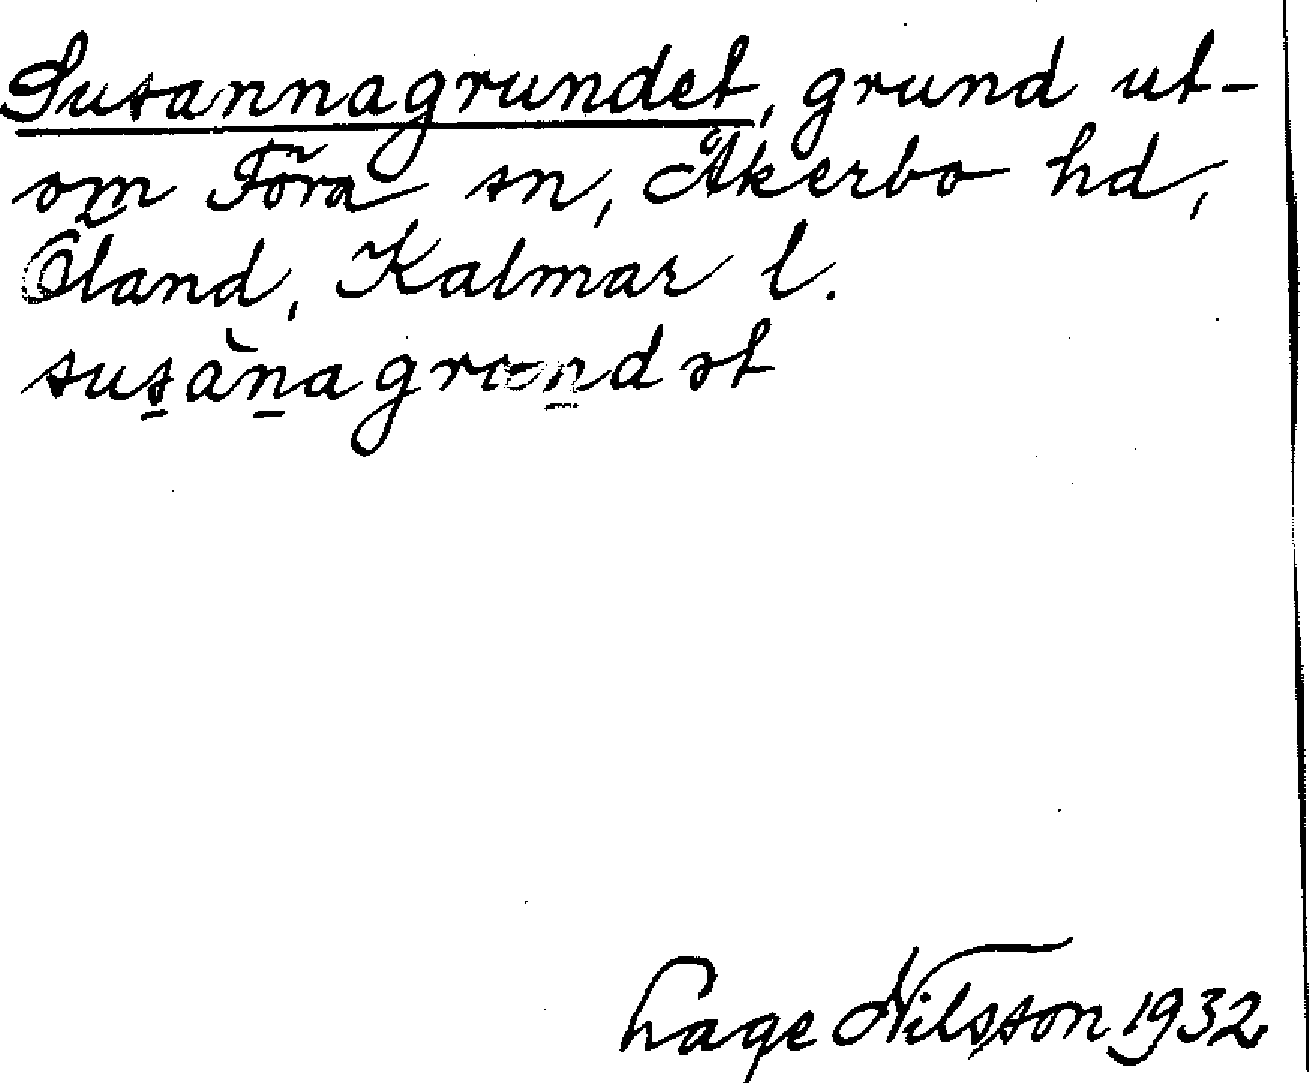 Susannagrundet, grund ut-
om Föra sn, Åkerbo hd,
Öland, Kalmar l.
Lage Nilsson 1932